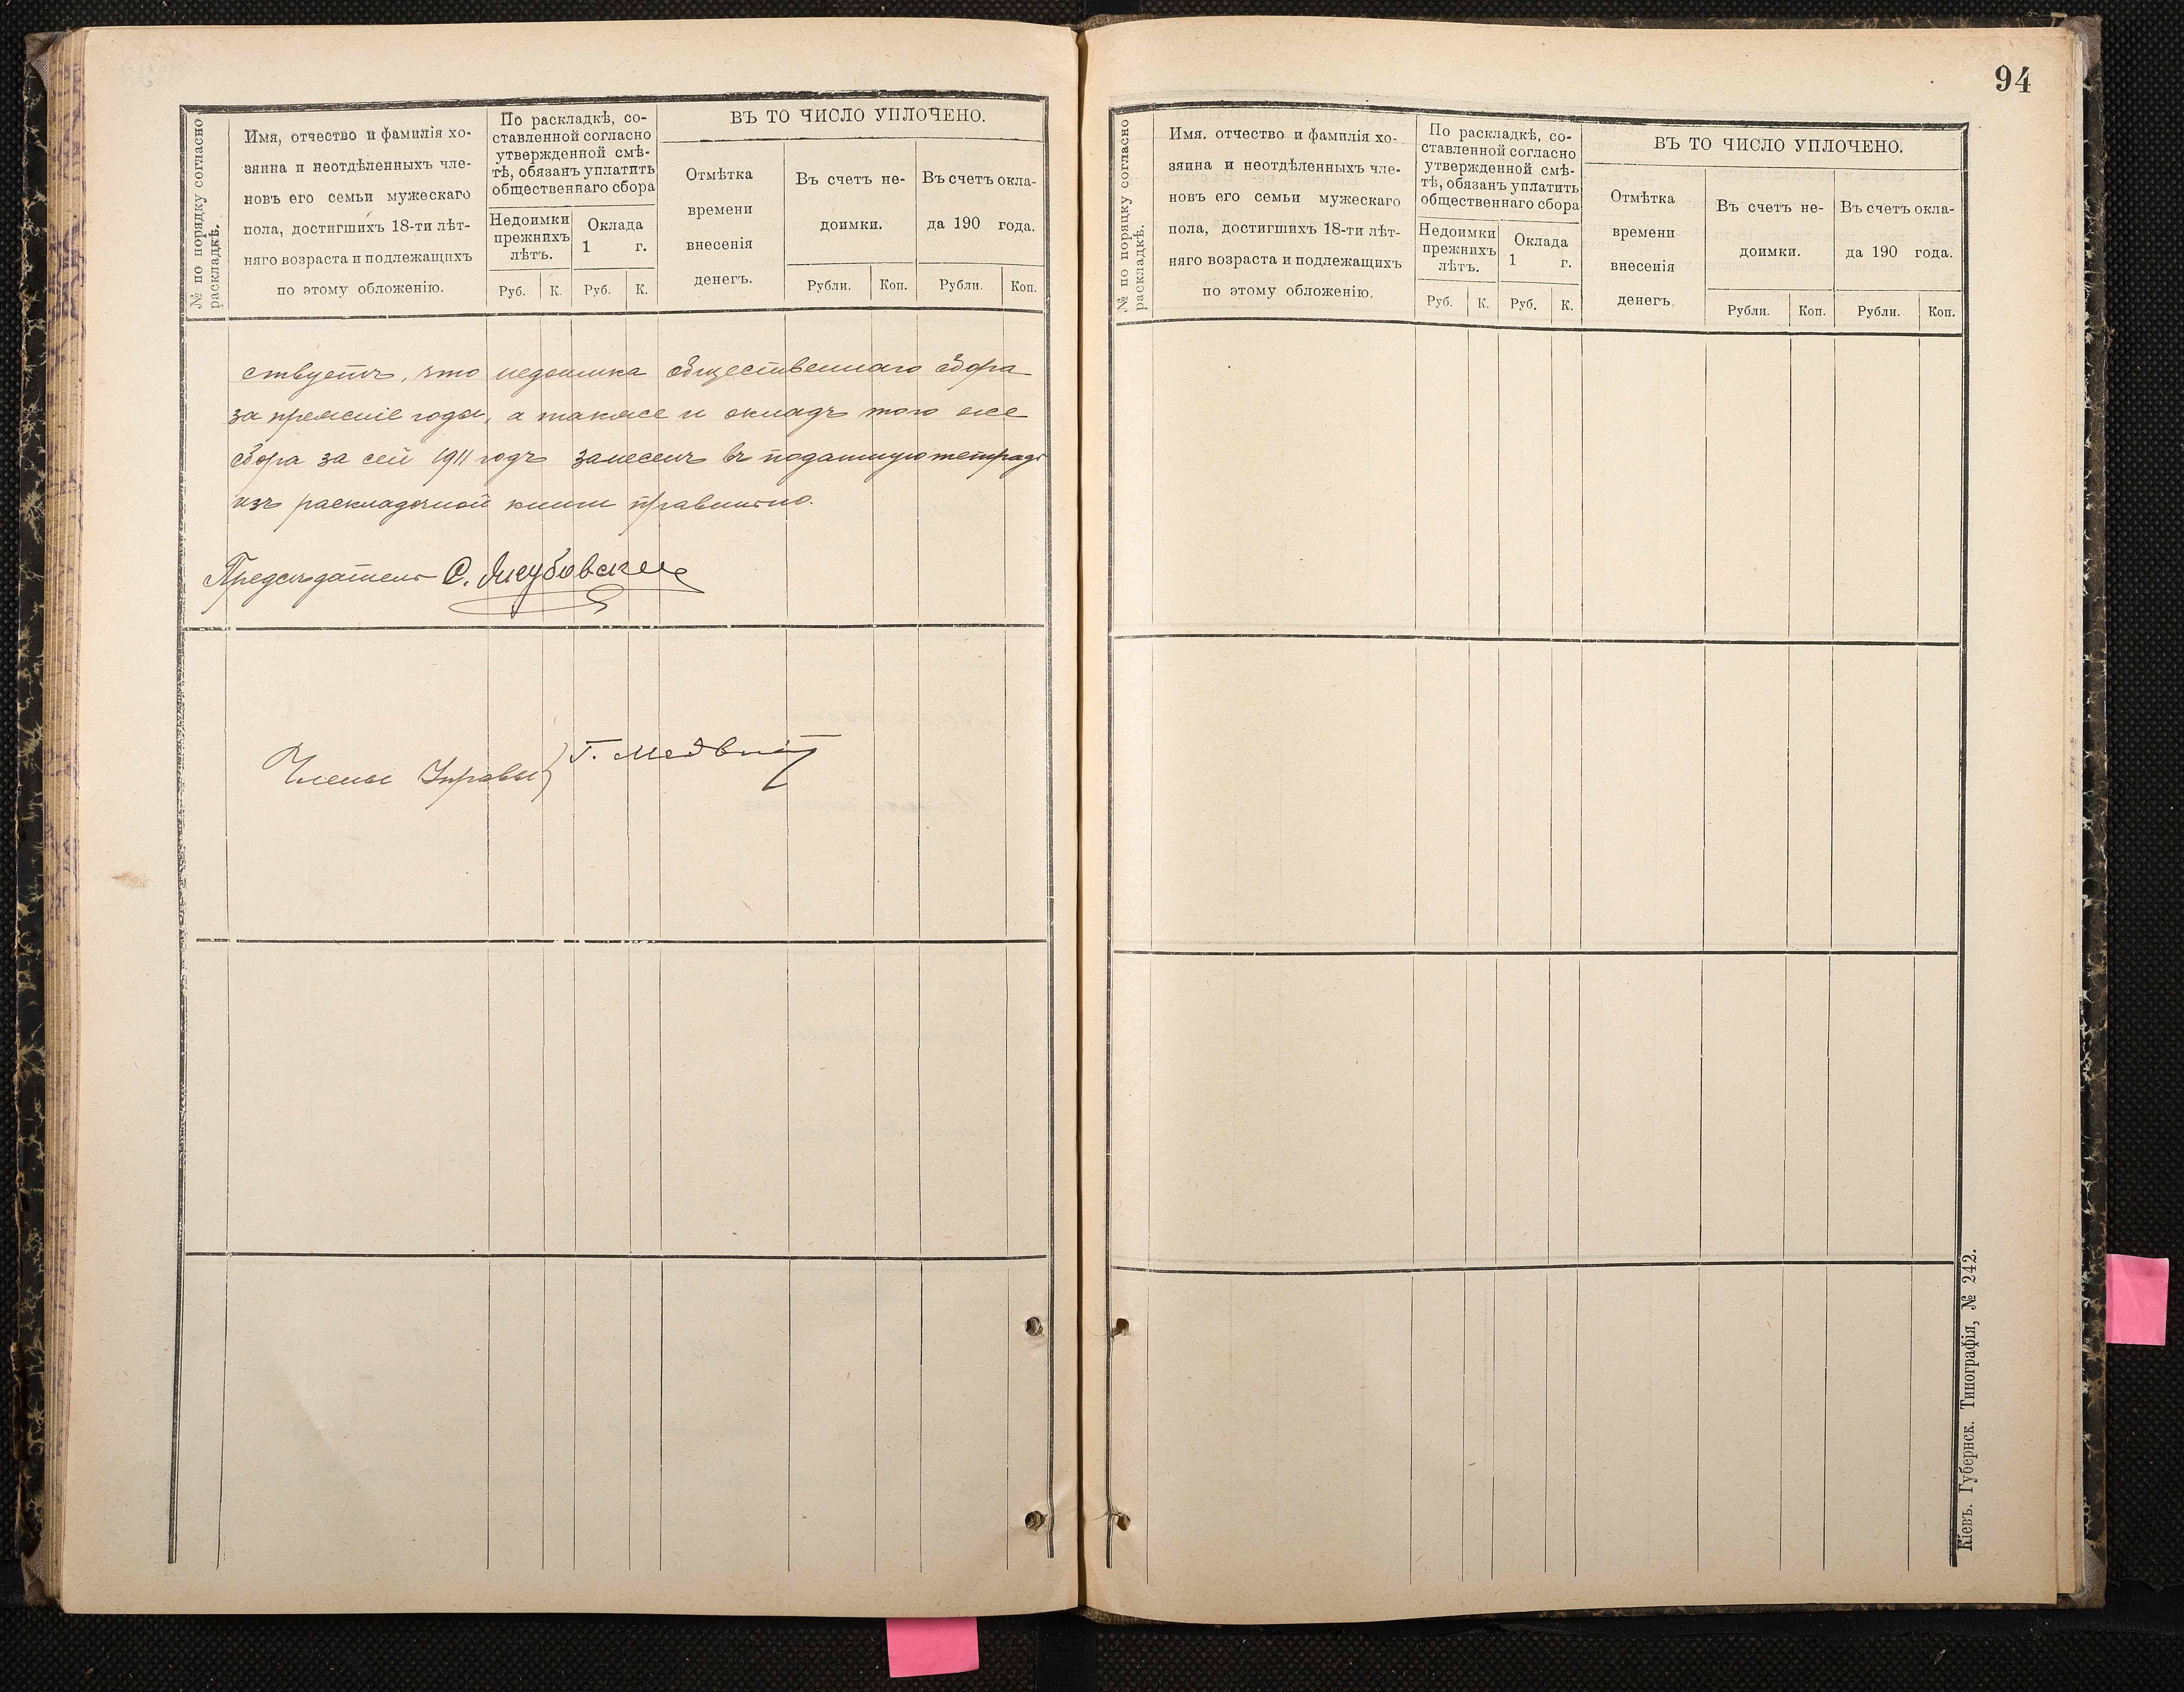 № по порядку согласно
раскладкѣ.
Имя, отчество и фамилія хо-
зяина и неотдѣленныхъ чле-
новъ его семьи мужескаго
пола, достигшихъ 18-ти лѣт-
няго возраста и подлежащихъ
по этому обложенію.
По раскладкѣ, со-
ставленной согласно
утвержденной смѣ-
тѣ, обязанъ уплатить
общественнаго сбора
Недоимки
прежнихъ
лѣтъ.
Оклада
1 г.
Руб. К. Руб. К.
ВЪ ТО ЧИСЛО УПЛОЧЕНО.
Отмѣтка
времени
внесенія
денегъ.
Въ счетъ не-
доимки.
Рубли. Коп.
Въ счетъ окла-
да 190 года.
Рубли. Коп.
ствуетъ, что недоимка общественнаго сбора
за прежніе годы, а также и окладъ того же
сбора за сей 1911 годъ занесенъ въ податную тетрадь
изъ раскладочной книги правильно.
Предсѣдатель С. Якубовскій
Члены Управы Г. Медвѣдь
94
№ по порядку согласно
раскладкѣ.
Имя, отчество и фамилія хо-
зяина и неотдѣленныхъ чле-
новъ его семьи мужескаго
пола, достигшихъ 18-ти лѣт-
няго возраста и подлежащихъ
по этому обложенію.
По раскладкѣ, со-
ставленной согласно
утвержденной смѣ-
тѣ, обязанъ уплатить
общественнаго сбора
Недоимки
прежнихъ
лѣтъ.
Оклада
1 г.
Руб. К. Руб. К.
ВЪ ТО ЧИСЛО УПЛОЧЕНО.
Отмѣтка
времени
внесенія
денегъ
Въ счетъ не-
доимки.
Рубли. Коп.
Въ счетъ окла-
да 190 года.
Рубли. Коп.
Кіевъ. Губернск. Типографія, № 242.